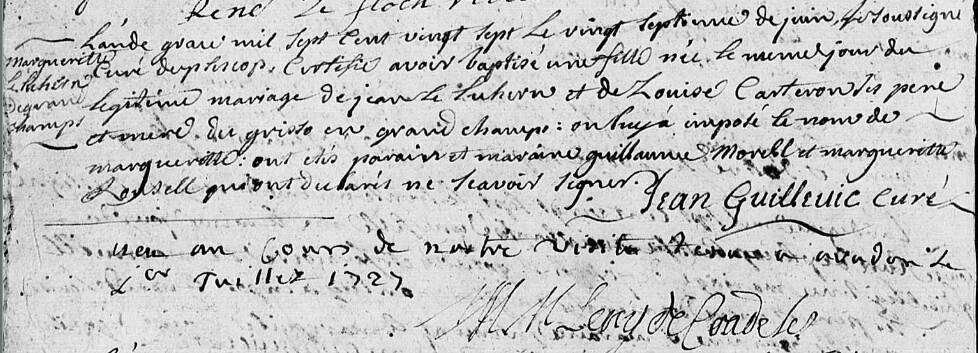 René Le floch
Marguerite
Le Luhern
De grand
champs
Lande grace mil sept Cent vingt sept Le vingt septieme de juin, Je soussigné
Curé de plescop, Certifie avoir baptisé une fille née le meme jour du
legitime mariage de jean Le Luhern et de Louise Carteron ses pere
et mere du grisso en grand champs : on luy à imposé le nom de
margueritte : ont etés parain et maraine guillaume Morell et marguerite
qui ont declarés ne scavoir signer.
Jean Guillevic Curé
veu au Cours de nostre visite Tenue a le
1er Juillet 1727